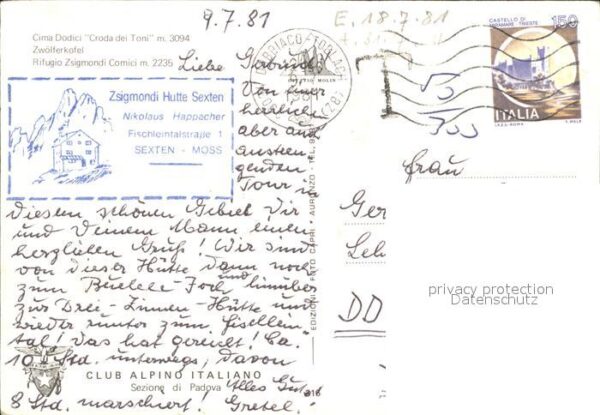 9.7.81
E. 18.7.81
Cima Dodici "Croda dei Toni" m. 3094
Zwölferkofel
Rifugio Zsigmondi Comici m. 2235
Liebe
Zsigmondi Hutte Sexten
Nikolaus Happacher
Fischleintalstraße 1
SEXTEN - MOSS
DOBBIACO - TOBLACH
CASTELLO DI
MIRAMARE TRIESTE
150
ITALIA
Von einer
herrlichen
aber auch
anstren
genden
Tour in
diesem schönen Gebiet Dir
und Deinem Mann einen
herzlichen Gruß! Wir sind
von dieser Hütte dann noch
zum Büllele-Joch hinüber
und
zur Drei-Zinnen-Hütte und
wieder runter zum Fischlein
tal! Das hat gereicht! Ca.
10 Std. unterwegs, davon
8 Std. marschiert!
Alles Gute
Gretel.
CLUB ALPINO ITALIANO
Sezione di Padova
316
EDIZIONI FOTO CAPRI - AURONZO - TEL.
Frau
DD
privacy protection
Datenschutz